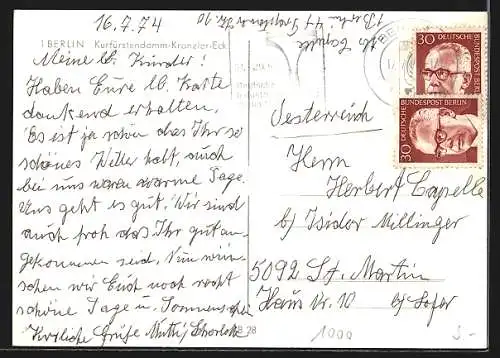 16.7.74
1 BERLIN Kurfürstendamm-Kranzler-Eck
Meine lb. Kinder!
Haben Eure lb. Karte
dankend erhalten,
Es ist ja schön das Ihr so
schönes Wetter habt, auch
bei uns waren warme Tage.
Uns geht es gut. Wir sind
auch froh das Ihr gut an-
gekommen seid. Nun wün-
schen wir Euch noch recht
schöne Tage u. Sonnenschein
Herzliche Grüße Mutti,
Abs. Capelle
1 Berlin 44
30 DEUTSCHE BUNDESPOST BERLIN
30 DEUTSCHE BUNDESPOST BERLIN
Oesterreich
Herrn
Herbert Capelle
b/ Isidor Millinger
5092 St. Martin
Haus Nr. 10 b/ Lofer
28
1000
5-